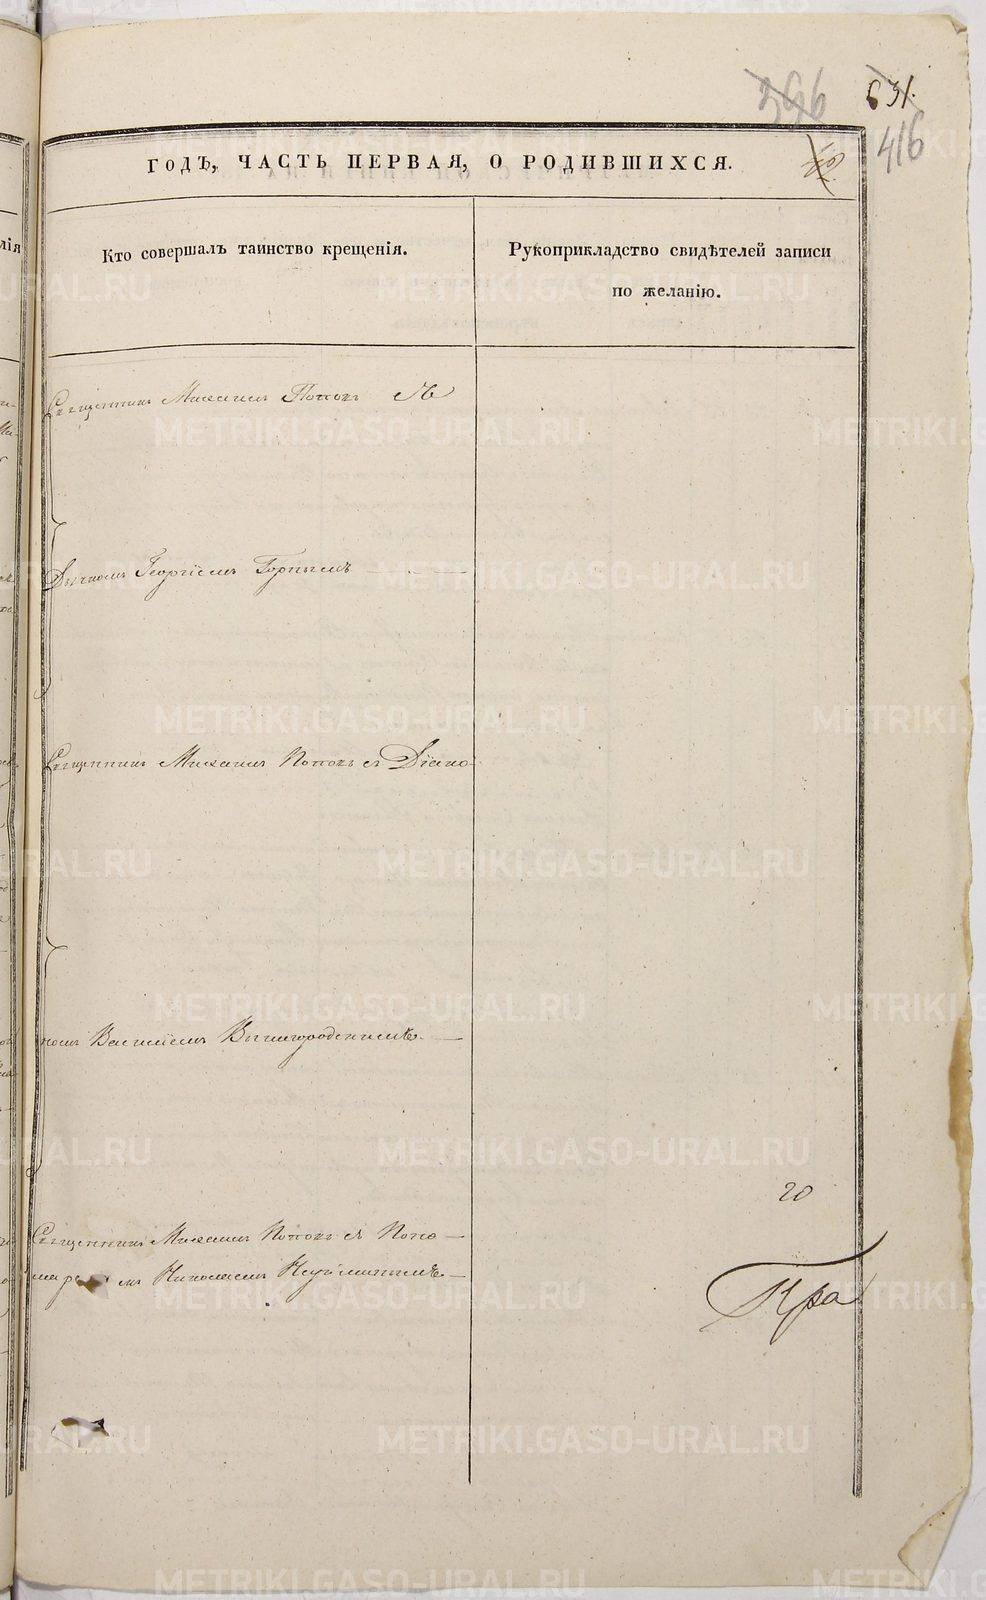 396 631.
416
ГОДЪ, ЧАСТЬ ПЕРВАЯ, О РОДИВШИХСЯ.
Кто совершалъ таинство крещенія.
Рукоприкладство свидѣтелей записи
по желанію.
Священникъ Михаилъ Поповъ съ
Дьячкомъ Георгіемъ Горнымъ
Священникъ Михаилъ Поповъ съ Діако-
номъ Василіемъ Вышегородскимъ.
20
Священникъ Михаилъ Поповъ съ Поно-
маремъ Николаемъ
METRIKI.GASO-URAL.RU